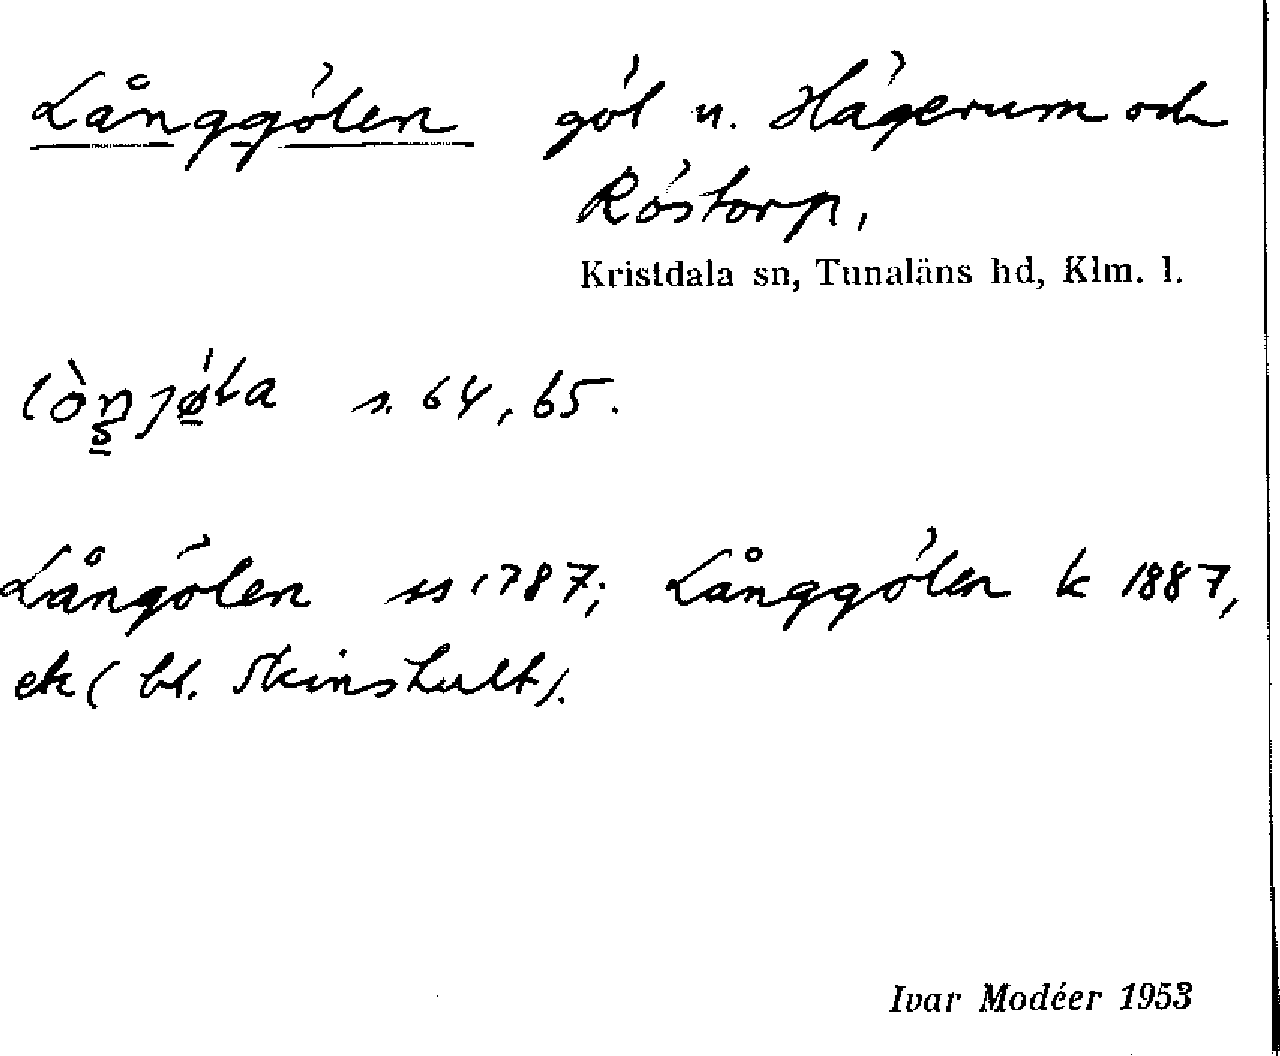 Långgölen göl u. Hägerum och
Röstorp,
Kristdala sn, Tunaläns hd, Klm. l.
s. 64, 65.
Långölen ss 1787; Långgölen k 1887,
ek (bl. Skinshult).
Ivar Modéer 1953